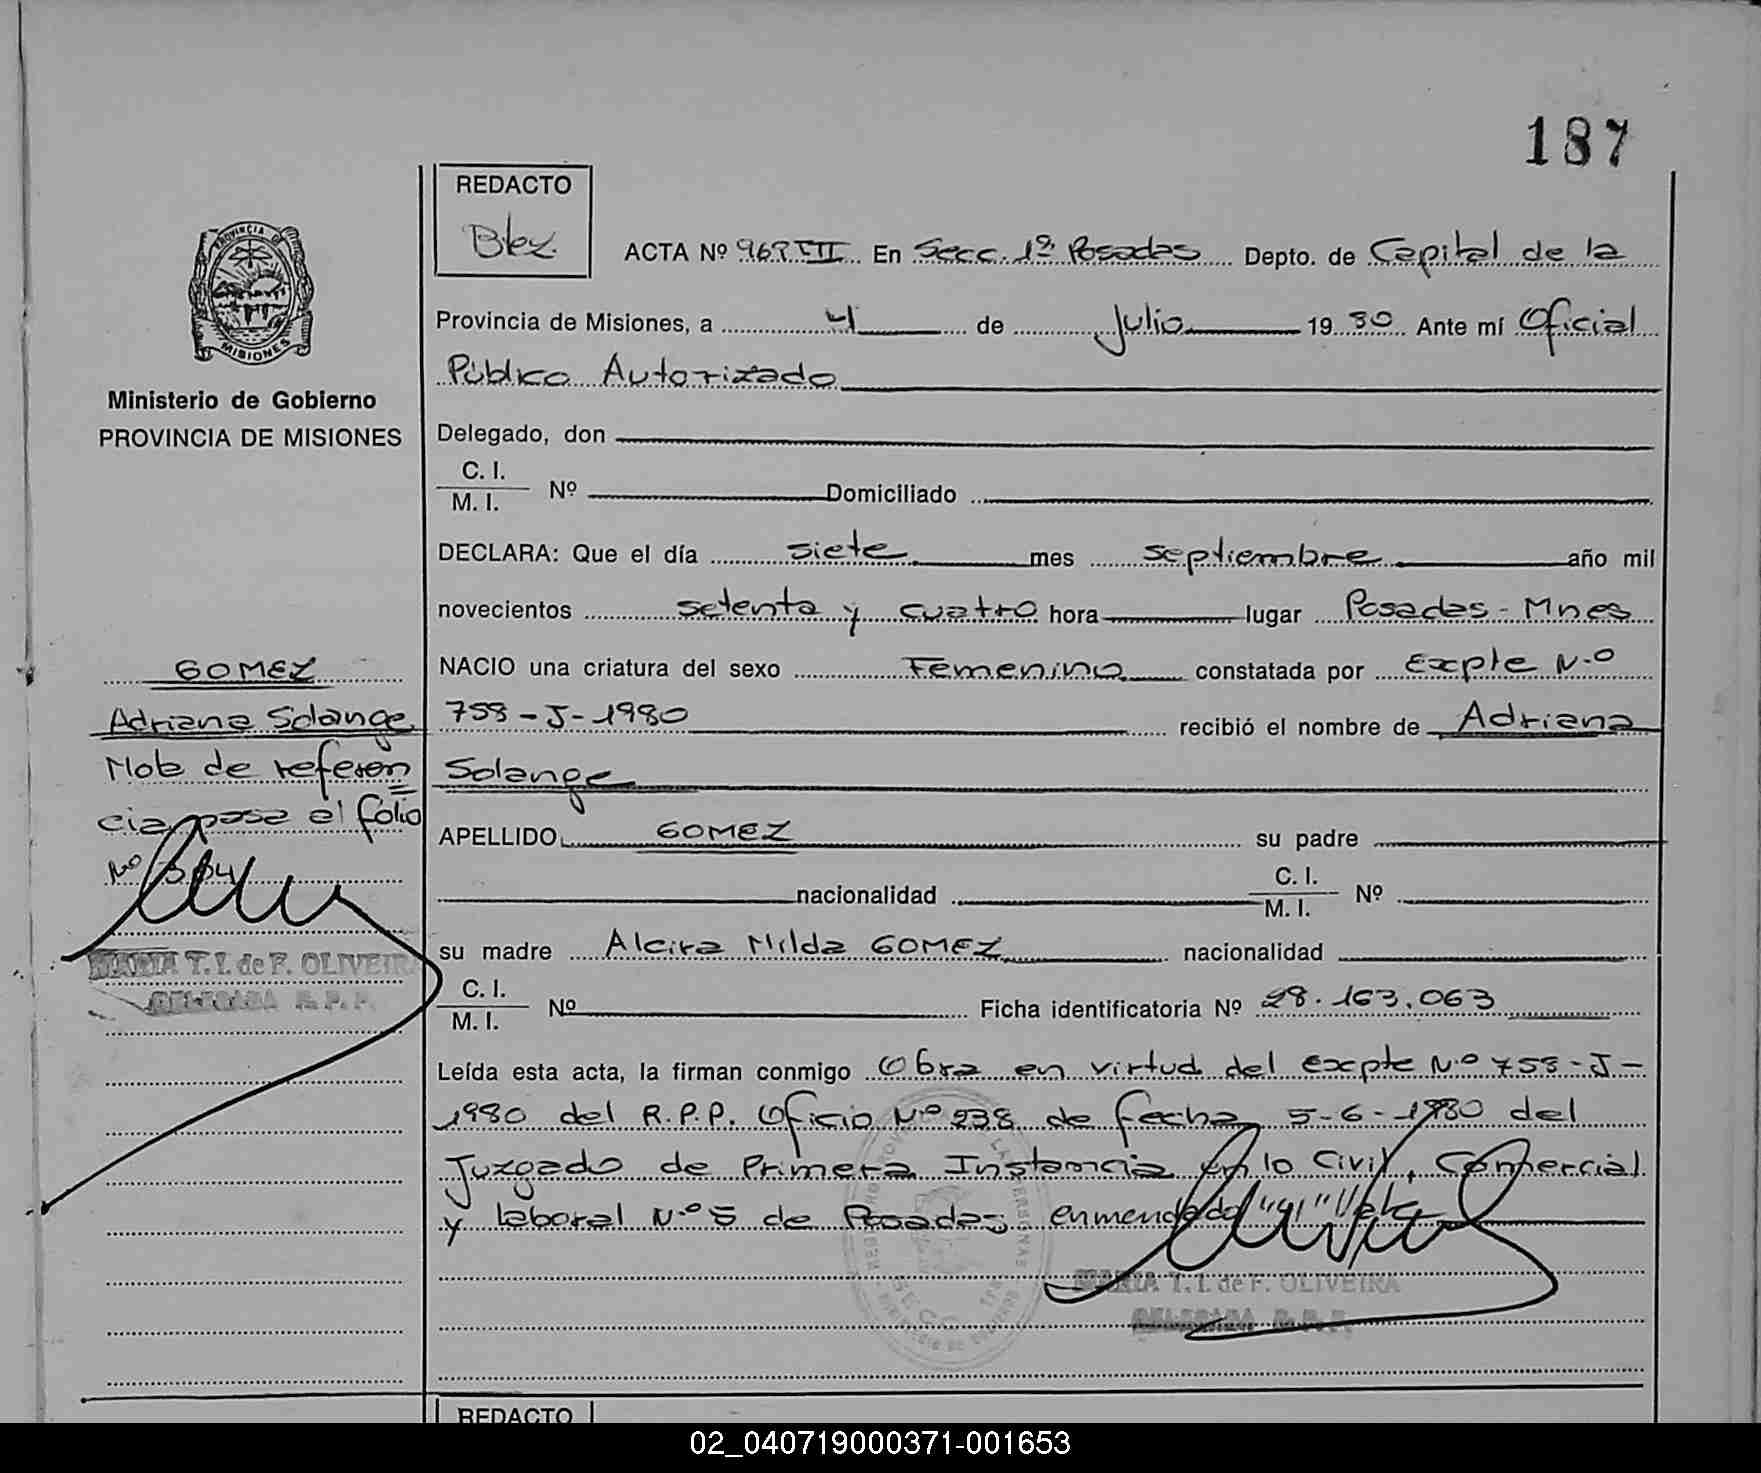 187
REDACTO
ACTA Nº 969 TII En Secc. 1ª Posadas Depto. de Capital de la
PROVINCIA DE MISIONES
Provincia de Misiones, a 4 de Julio 1980 Ante mí Oficial
Público Autorizado
Ministerio de Gobierno
PROVINCIA DE MISIONES
Delegado, don
C. I.
M. I. Nº Domiciliado
DECLARA: Que el día siete mes septiembre año mil
novecientos setenta y cuatro hora lugar Posadas - Mnes
NACIO una criatura del sexo Femenino constatada por Expte N.º
758-J-1980 recibió el nombre de Adriana
Solange
APELLIDO GOMEZ su padre
nacionalidad C. I.
M. I. Nº
su madre Alcira Nilda GOMEZ nacionalidad
C. I.
M. I. Nº Ficha identificatoria Nº 28.163.063
Leída esta acta, la firman conmigo Obra en virtud del Expte N.º 758-J-
1980 del R.P.P. Oficio Nº 238 de fecha 5-6-1980 del
Juzgado de Primera Instancia en lo Civil, Comercial
y laboral N.º 5 de Posadas enmendado "41" Vale
MARIA T. I. de F. OLIVEIRA
DELEGADA R. P. P.
GOMEZ
Adriana Solange
Nota de referen
cia pasa al folio
Nº
MARIA T. I. de F. OLIVEIRA
DELEGADA R. P. P.
REDACTO
02_040719000371-001653